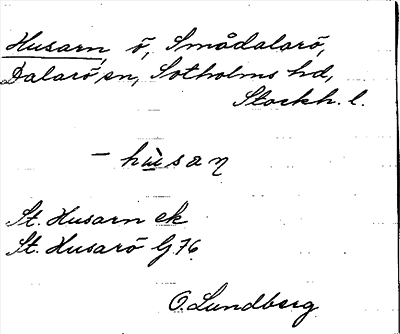 Husarn, ö, Smådalarö,
Dalarö sn, Sotholms hd,
Stockh. l.
St. Husarn ek
St. Husarö G.76
O. Lundberg